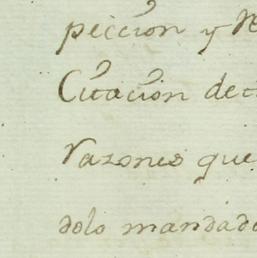 peccion y Re
Citacion de
razones que
dolo mandado